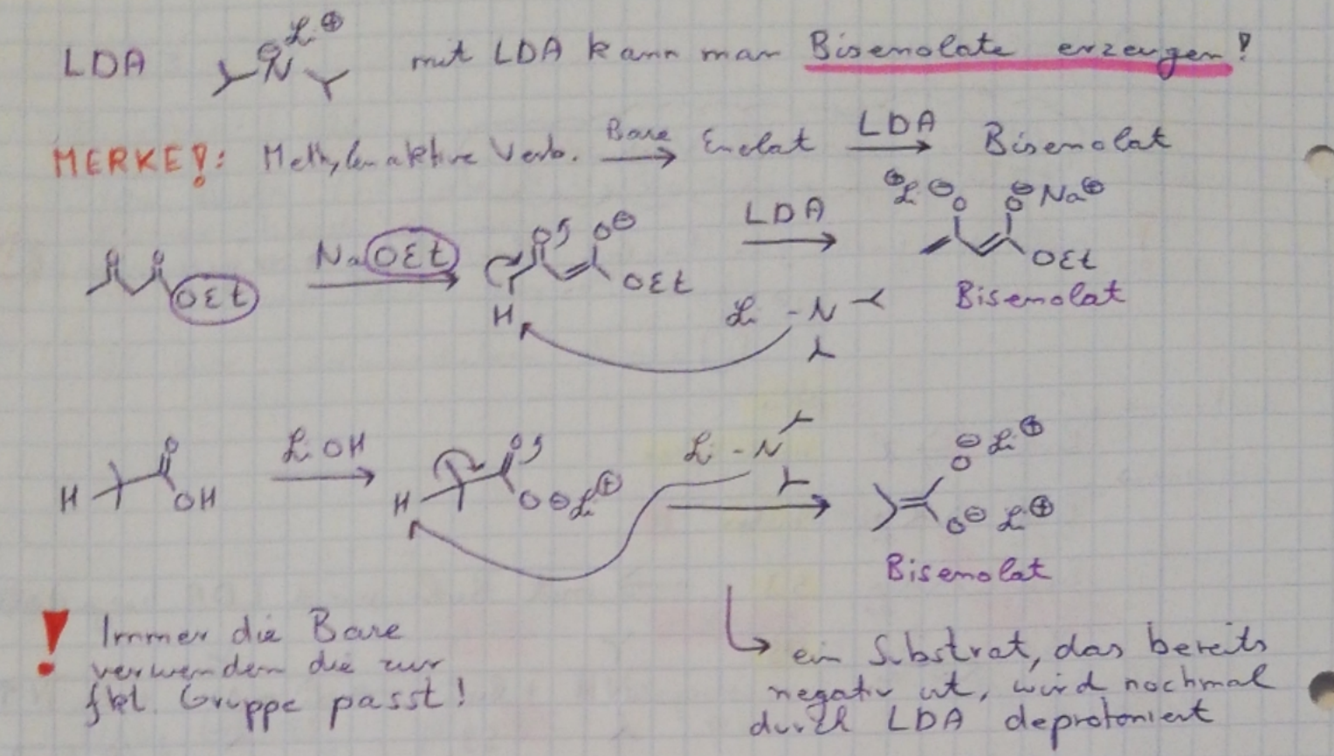 LDA Li⊕ ⊖N mit LDA kann man Bisenolate erzeugen!
MERKE!: Methylenaktive Verb. Base Enolat LDA Bisenolat
O O OEt NaOEt O O⊖ OEt H LDA ⊕Li ⊖O O⊖ Na⊕ OEt
Li - N Bisenolat
H O OH LiOH H O O⊖ Li⊕ Li - N O⊖ Li⊕ O⊖ Li⊕
Bisenolat
! Immer die Base
verwenden die zur
fkt. Gruppe passt!
ein Substrat, das bereits
negativ ist, wird nochmal
durch LDA deprotoniert